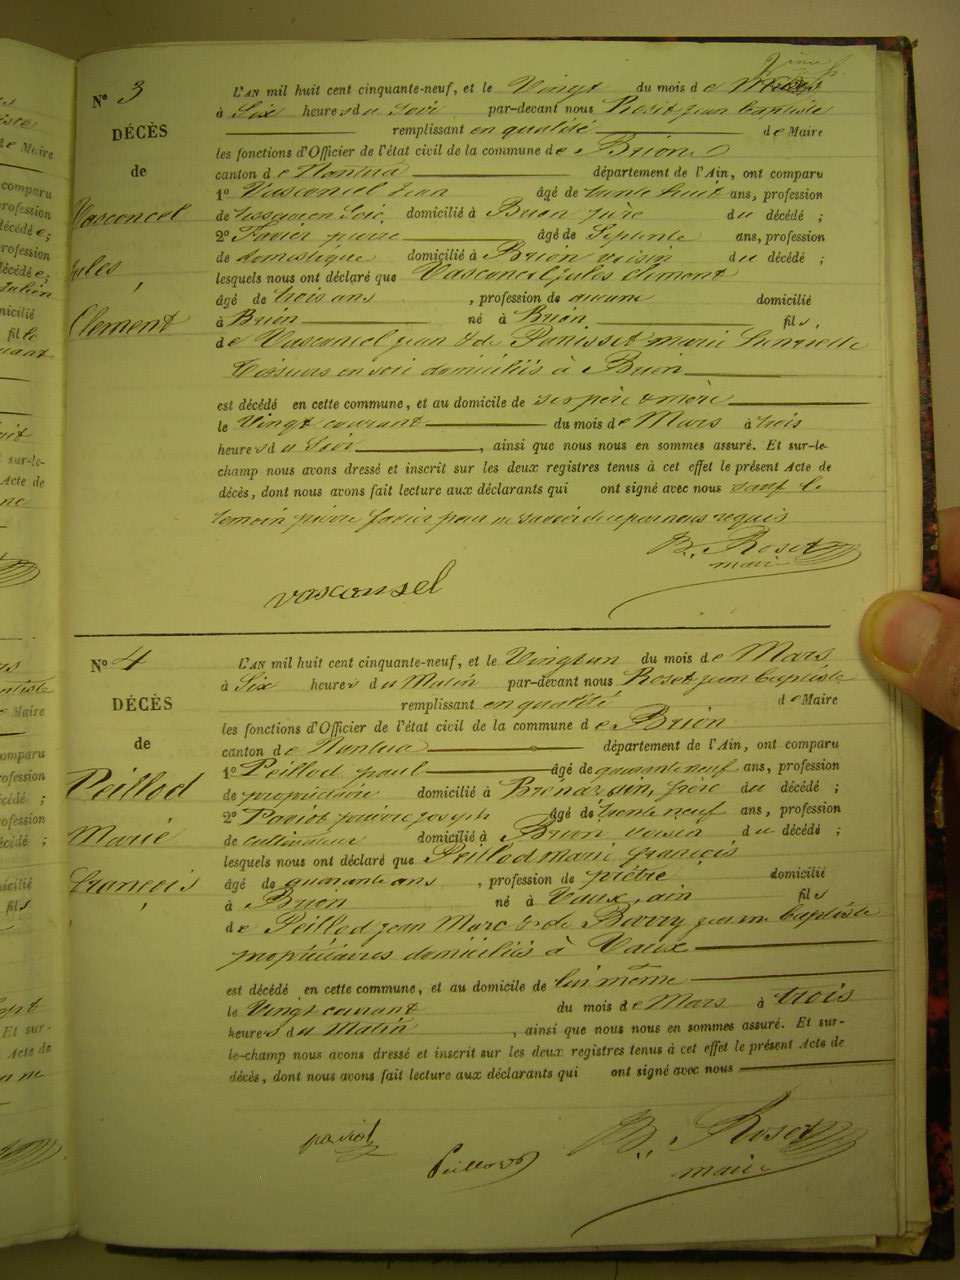 N° 3
DÉCÈS
de
Vasconcel
Jules
Clement
L'AN mil huit cent cinquante-neuf, et le Vingt du mois de Mars
à Six heures du Soir par-devant nous Roset jean baptiste
remplissant en qualité de Maire
les fonctions d'Officier de l'état civil de la commune de Brion
canton de Nantua département de l'Ain, ont comparu
1° Vasconcel jean âgé de trente huit ans, profession
de tisseur en Soie, domicilié à Brion père du décédé ;
2° Favier pierre âgé de Septente ans, profession
de domestique domicilié à Brion voisin du décédé ;
lesquels nous ont déclaré que Vasconcel jules clement
âgé de trois ans , profession de aucune domicilié
à Brion né à Brion fils,
de Vasconcel jean & de Panisset marie henriette
Tisseurs en soie domiciliés à Brion
est décédé en cette commune, et au domicile de ses père & mère
le Vingt courant du mois de Mars à trois
heures du Soir , ainsi que nous nous en sommes assuré. Et sur-le-
champ nous avons dressé et inscrit sur les deux registres tenus à cet effet le présent Acte de
décès, dont nous avons fait lecture aux déclarants qui ont signé avec nous sauf le
temoin pierre favier pour ne savoir de ce par nous requis
B. Roset
maire
vasconsel
N° 4
DÉCÈS
de
Peillod
Marie
françois
L'AN mil huit cent cinquante-neuf, et le Vingt un du mois de Mars
à Six heures du Matin par-devant nous Roset jean baptiste
remplissant en qualité de Maire
les fonctions d'Officier de l'état civil de la commune de Brion
canton de Nantua département de l'Ain, ont comparu
1° Peillod paul âgé de quarante neuf ans, profession
de propriétaire domicilié à frère du décédé ;
2° joseph âgé de trente neuf ans, profession
de cultivateur domicilié à Brion voisin du décédé ;
lesquels nous ont déclaré que Peillod marie françois
âgé de quarante ans , profession de prêtre domicilié
à Brion né à Vaux, ain fils
de Peillod jean Marc & de Barry jeanne baptiste
propriétaires domiciliés à Vaux
est décédé en cette commune, et au domicile de lui même
le Vingt courant du mois de Mars à trois
heures du Matin , ainsi que nous nous en sommes assuré. Et sur-
le-champ nous avons dressé et inscrit sur les deux registres tenus à cet effet le présent Acte de
décès, dont nous avons fait lecture aux déclarants qui ont signé avec nous
Peillod
B. Roset
maire